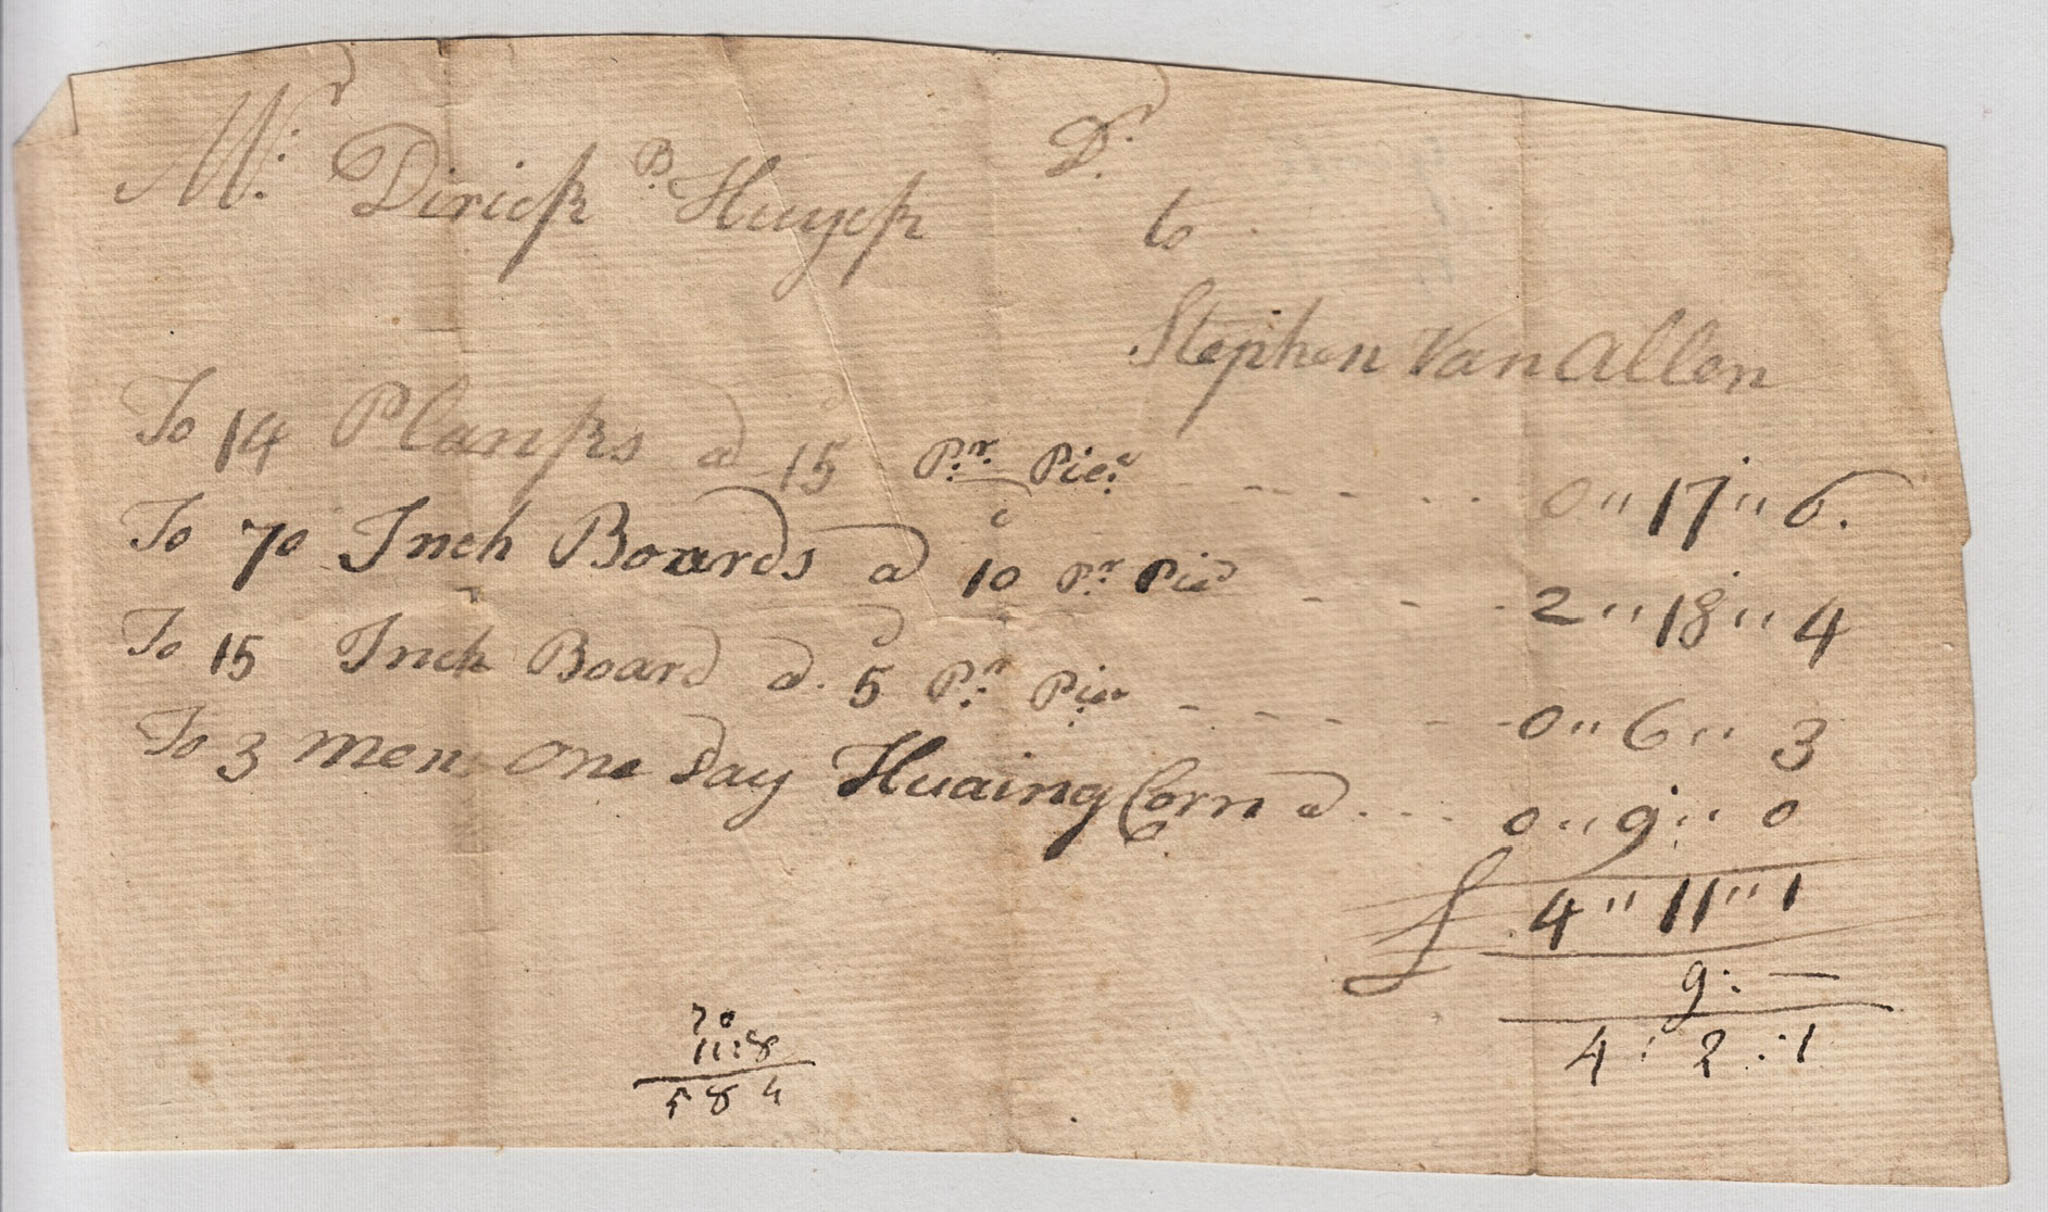 Mr. Dirick B. Huyck Dr.
to
Stephen Van Allen
To 14 Planks a 15d Pr. Piec - - - - 0" 17" 6.
To 70 Inch Boards a 10d Pr. Piec - - - - 2" 18" 4
To 15 Inch Board a 5d Pr. Piec - - - - 0" 6" 3
To 3 men one day Huaing Corn a - - - - 0" 9" 0
£ 4" 11" 1
9: —
4 : 2 : 1
70
11:8
584